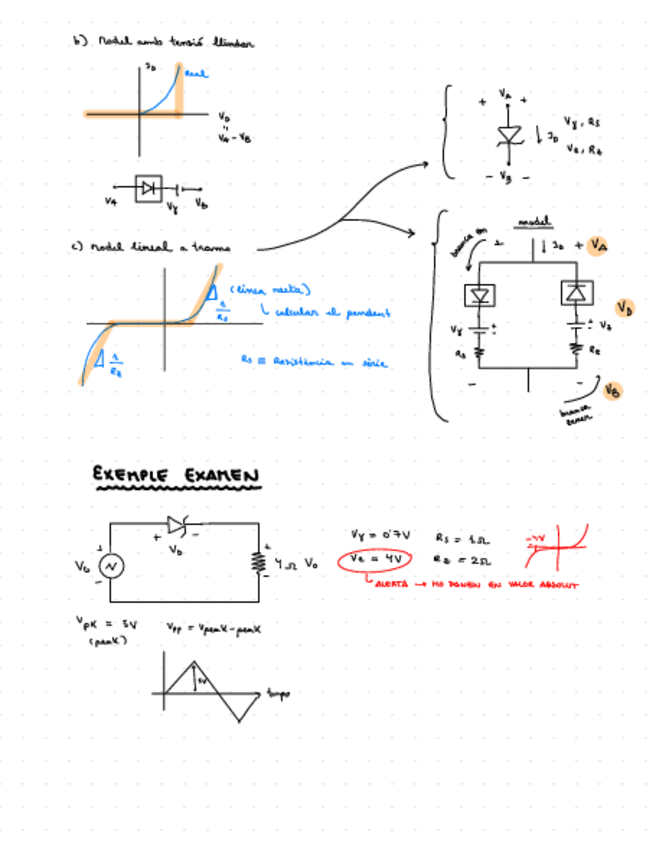 b) Model amb tensió llindar
I_D
Real
V_D
"
V_A - V_B
V_A
V_γ
V_B
c) Model lineal a trams
(línea recta)
calcular el pendent
1/R_S
1/R_Z
R_S ≡ Resistència en sèrie
+ V_A +
I_D
V_γ, R_S
V_Z, R_Z
- V_B -
model
branca on
+
I_D + V_A
V_D
V_γ + -
+ V_Z
R_S
R_Z
-
- V_B
branca zener
EXEMPLE EXAMEN
+ V_D -
V_G + -
4 Ω V_O
+
-
V_γ = 0'7V
R_S = 1Ω
V_Z = 4V
R_Z = 2Ω
-4V
ALERTA → HO PONEN EN VALOR ABSOLUT
V_PK = 5V
(peak)
V_PP = V_peak-peak
5V
temps